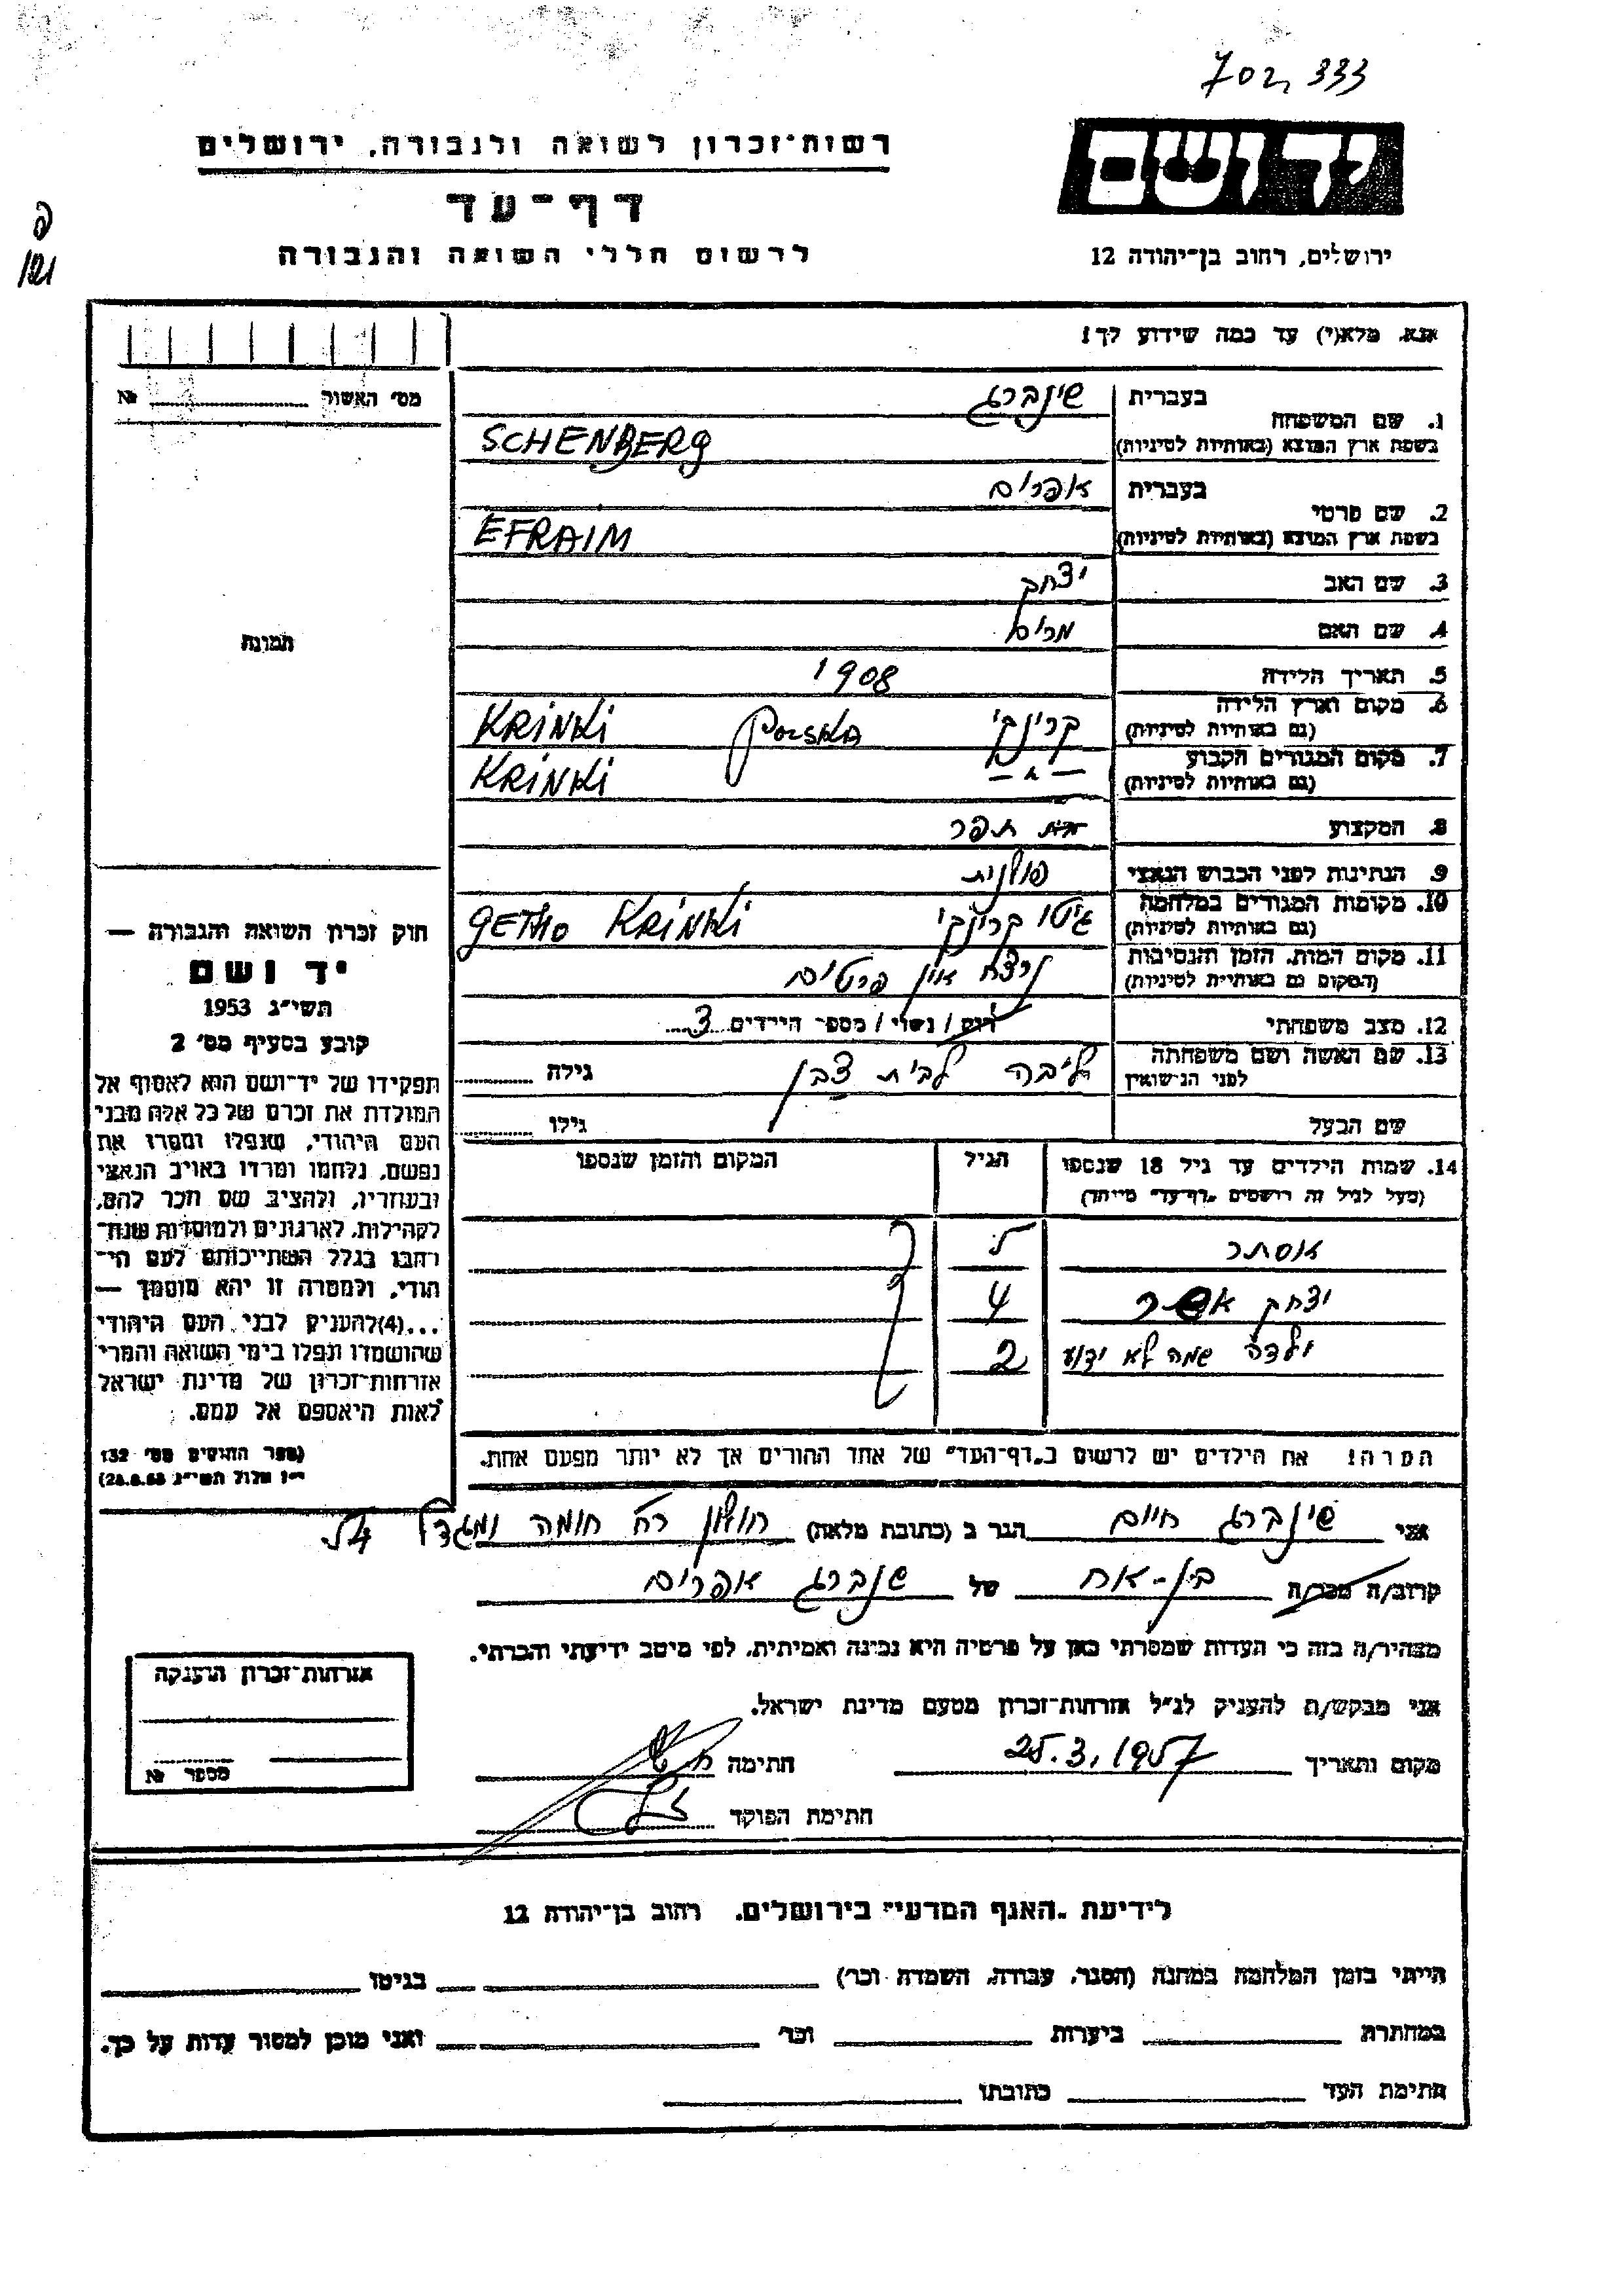 702,333
רשות־זכרון לשואה ולגבורה, ירושלים
יד ושם
דף־עד
לרשום חללי השואה והגבורה
ירושלים, רחוב בן־יהודה 12
פ
121
אנא, מלא(י) עד כמה שידוע לך!
מס' האשור № 
1. שם המשפחה בעברית שינברג
בשפת ארץ המוצא (באותיות לטיניות) SCHENBERG
2. שם פרטי בעברית אפרים
בשפת ארץ המוצא (באותיות לטיניות) EFRAIM
3. שם האב יצחק
4. שם האם מרים
תמונה
5. תאריך הלידה 1908
6. מקום וארץ הלידה (גם באותיות לטיניות) קרינקי POLSKA KRINKI
7. מקום המגורים הקבוע (גם באותיות לטיניות) KRINKI
8. המקצוע תפר
9. הנתינות לפני הכבוש הנאצי פולנית
10. מקומות המגורים במלחמה (גם באותיות לטיניות) גיטו קרינקי GETHO KRINKI
11. מקום המות, הזמן והנסיבות (המקום גם באותיות לטיניות) נרצח אין פרטים
12. מצב משפחתי רוק / נשוי / מספר הילדים 3
13. שם האשה ושם משפחתה לפני הנישואין ליבה לבית גילה
שם הבעל גילו
14. שמות הילדים עד גיל 18 שנספו הגיל המקום והזמן שנספו
(מעל לגיל זה רושמים "דף־עד" מיוחד)
אסתר
יצחק 4
ילדה שמה לא ידוע 2
הערה! את הילדים יש לרשום ב"דף־העד" של אחד ההורים אך לא יותר מפעם אחת.
חוק זכרון השואה והגבורה —
יד ושם
תשי"ג 1953
קובע בסעיף מס' 2
תפקידו של יד־ושם הוא לאסוף אל
המולדת את זכרם של כל אלה מבני
העם היהודי, שנפלו ומסרו את
נפשם, נלחמו ומרדו באויב הנאצי
ובעוזריו, ולהציב שם וזכר להם,
לקהילות, לארגונים ולמוסדות שנח־
רבו בגלל השתייכותם לעם הי־
הודי, ולמטרה זו יהא מוסמך —
...(4) להעניק לבני העם היהודי
שהושמדו ונפלו בימי השואה והמרי
אזרחות־זכרון של מדינת ישראל
לאות היאספם אל עמם.
(ספר החוקים מס' 132
י"ז אלול תשי"ג 28.8.53)
אני שינברג חיים הגר ב (כתובת מלאה) חולון רח חומה ומגדל
קרוב/ה מכר/ה בן-אח של שנברג אפרים
מצהיר/ה בזה כי העדות שמסרתי כאן על פרטיה היא נכונה ואמיתית, לפי מיטב ידיעתי והכרתי.
אני מבקש/ת להעניק לנ"ל אזרחות־זכרון מטעם מדינת ישראל.
אזרחות־זכרון הוענקה
מספר №
מקום ותאריך 25.3.1957 חתימה
חתימת הפוקד
לידיעת "האגף המדעי" בירושלים, רחוב בן־יהודה 12
הייתי בזמן המלחמה במחנה (הסגר, עבודה, השמדה וכו') בגיטו
במחתרת ביערות וכו' ואני מוכן למסור עדות על כך.
חתימת העד כתובתו